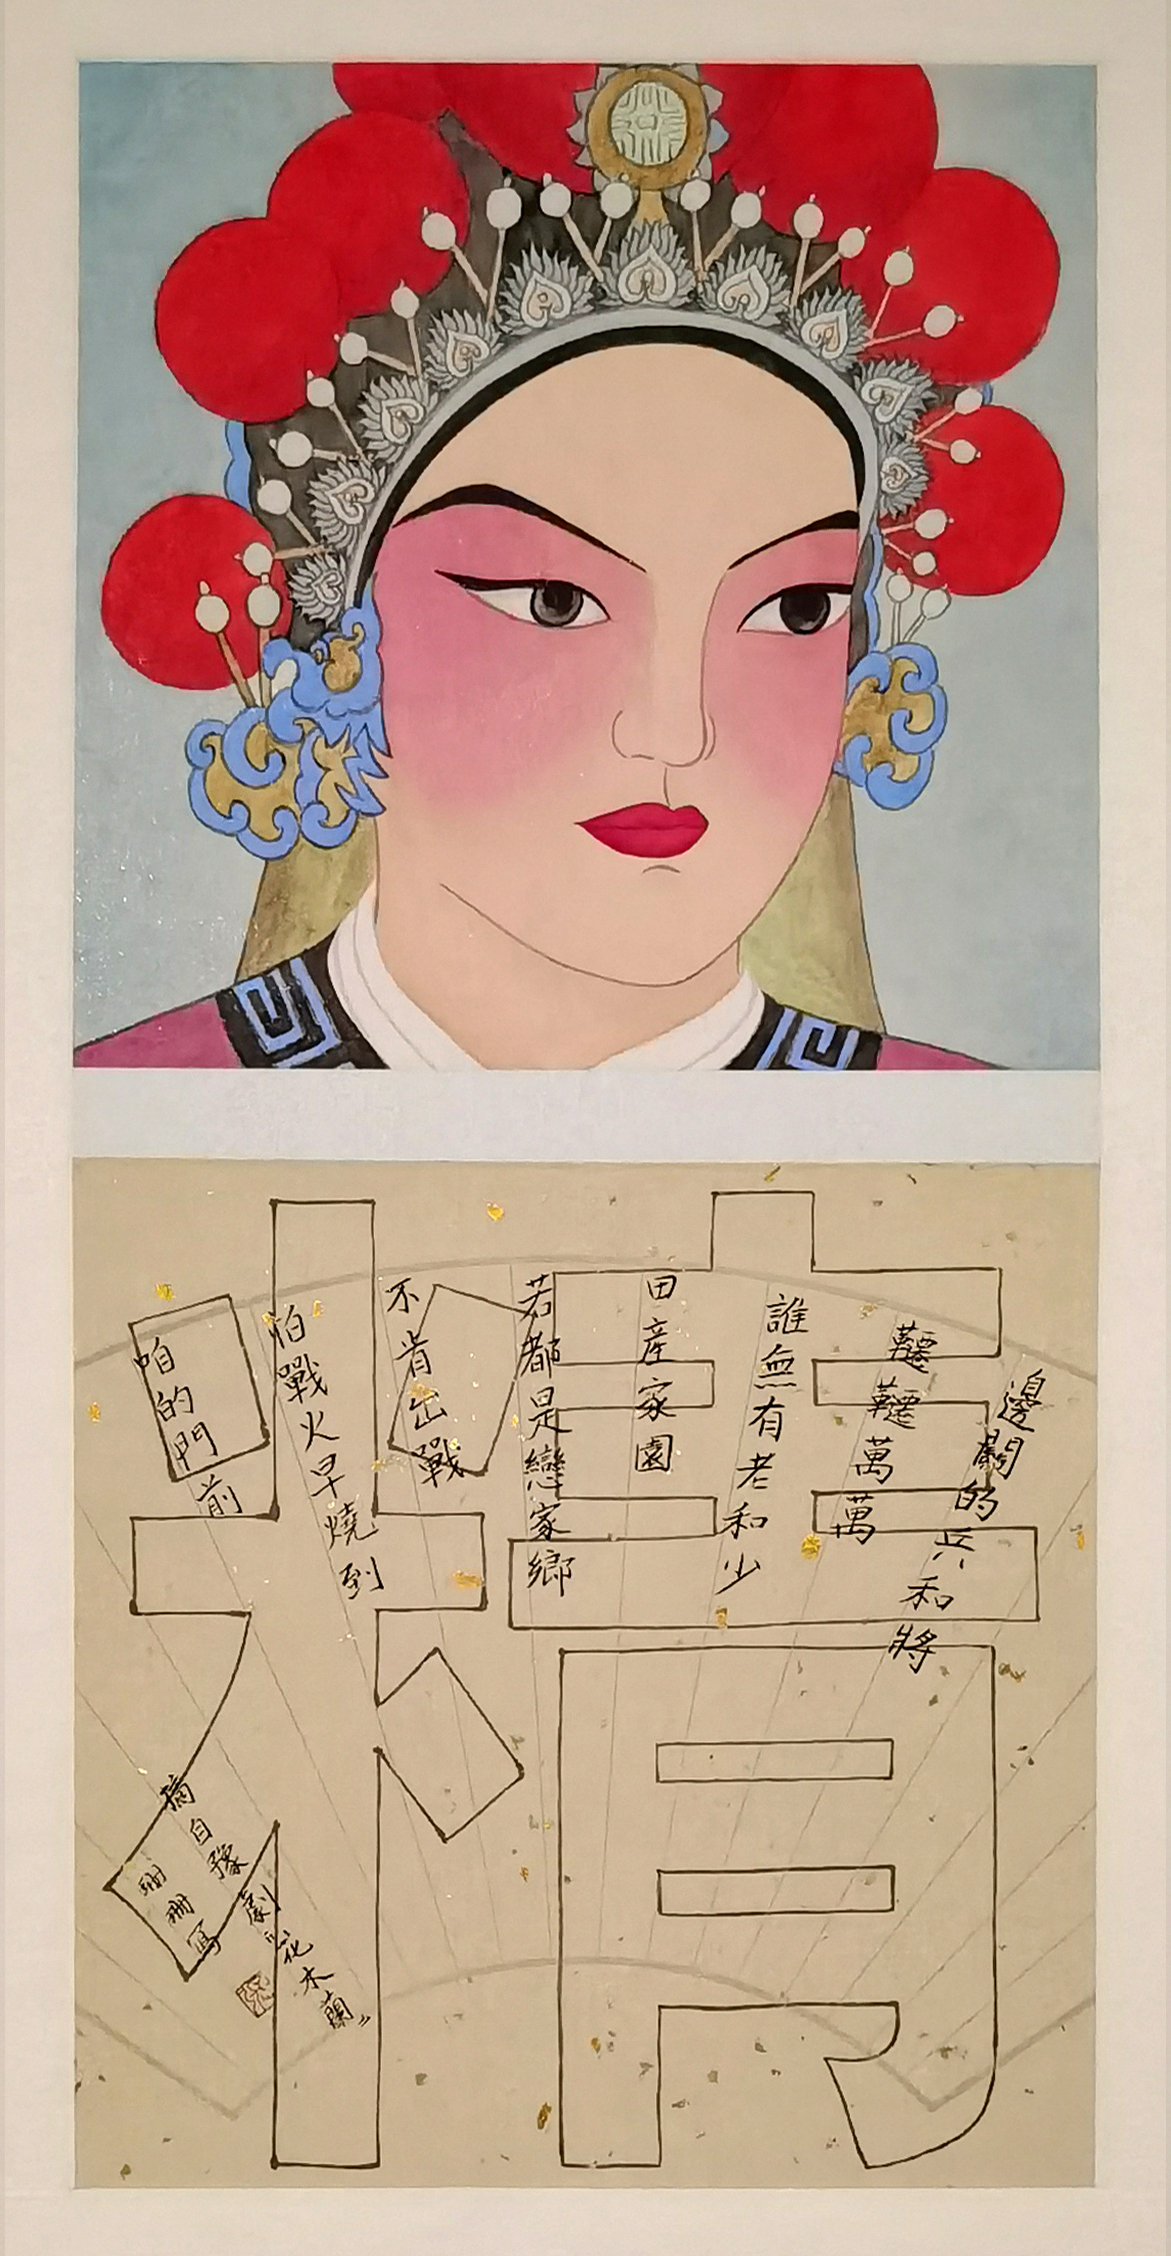 精
邊關的兵和將
韆韆萬萬
誰無有老和少
田産家園
若都是戀家鄉
不肯出戰
怕戰火早燒到
咱的門前
摘自豫劇“花木蘭”
珊珊寫